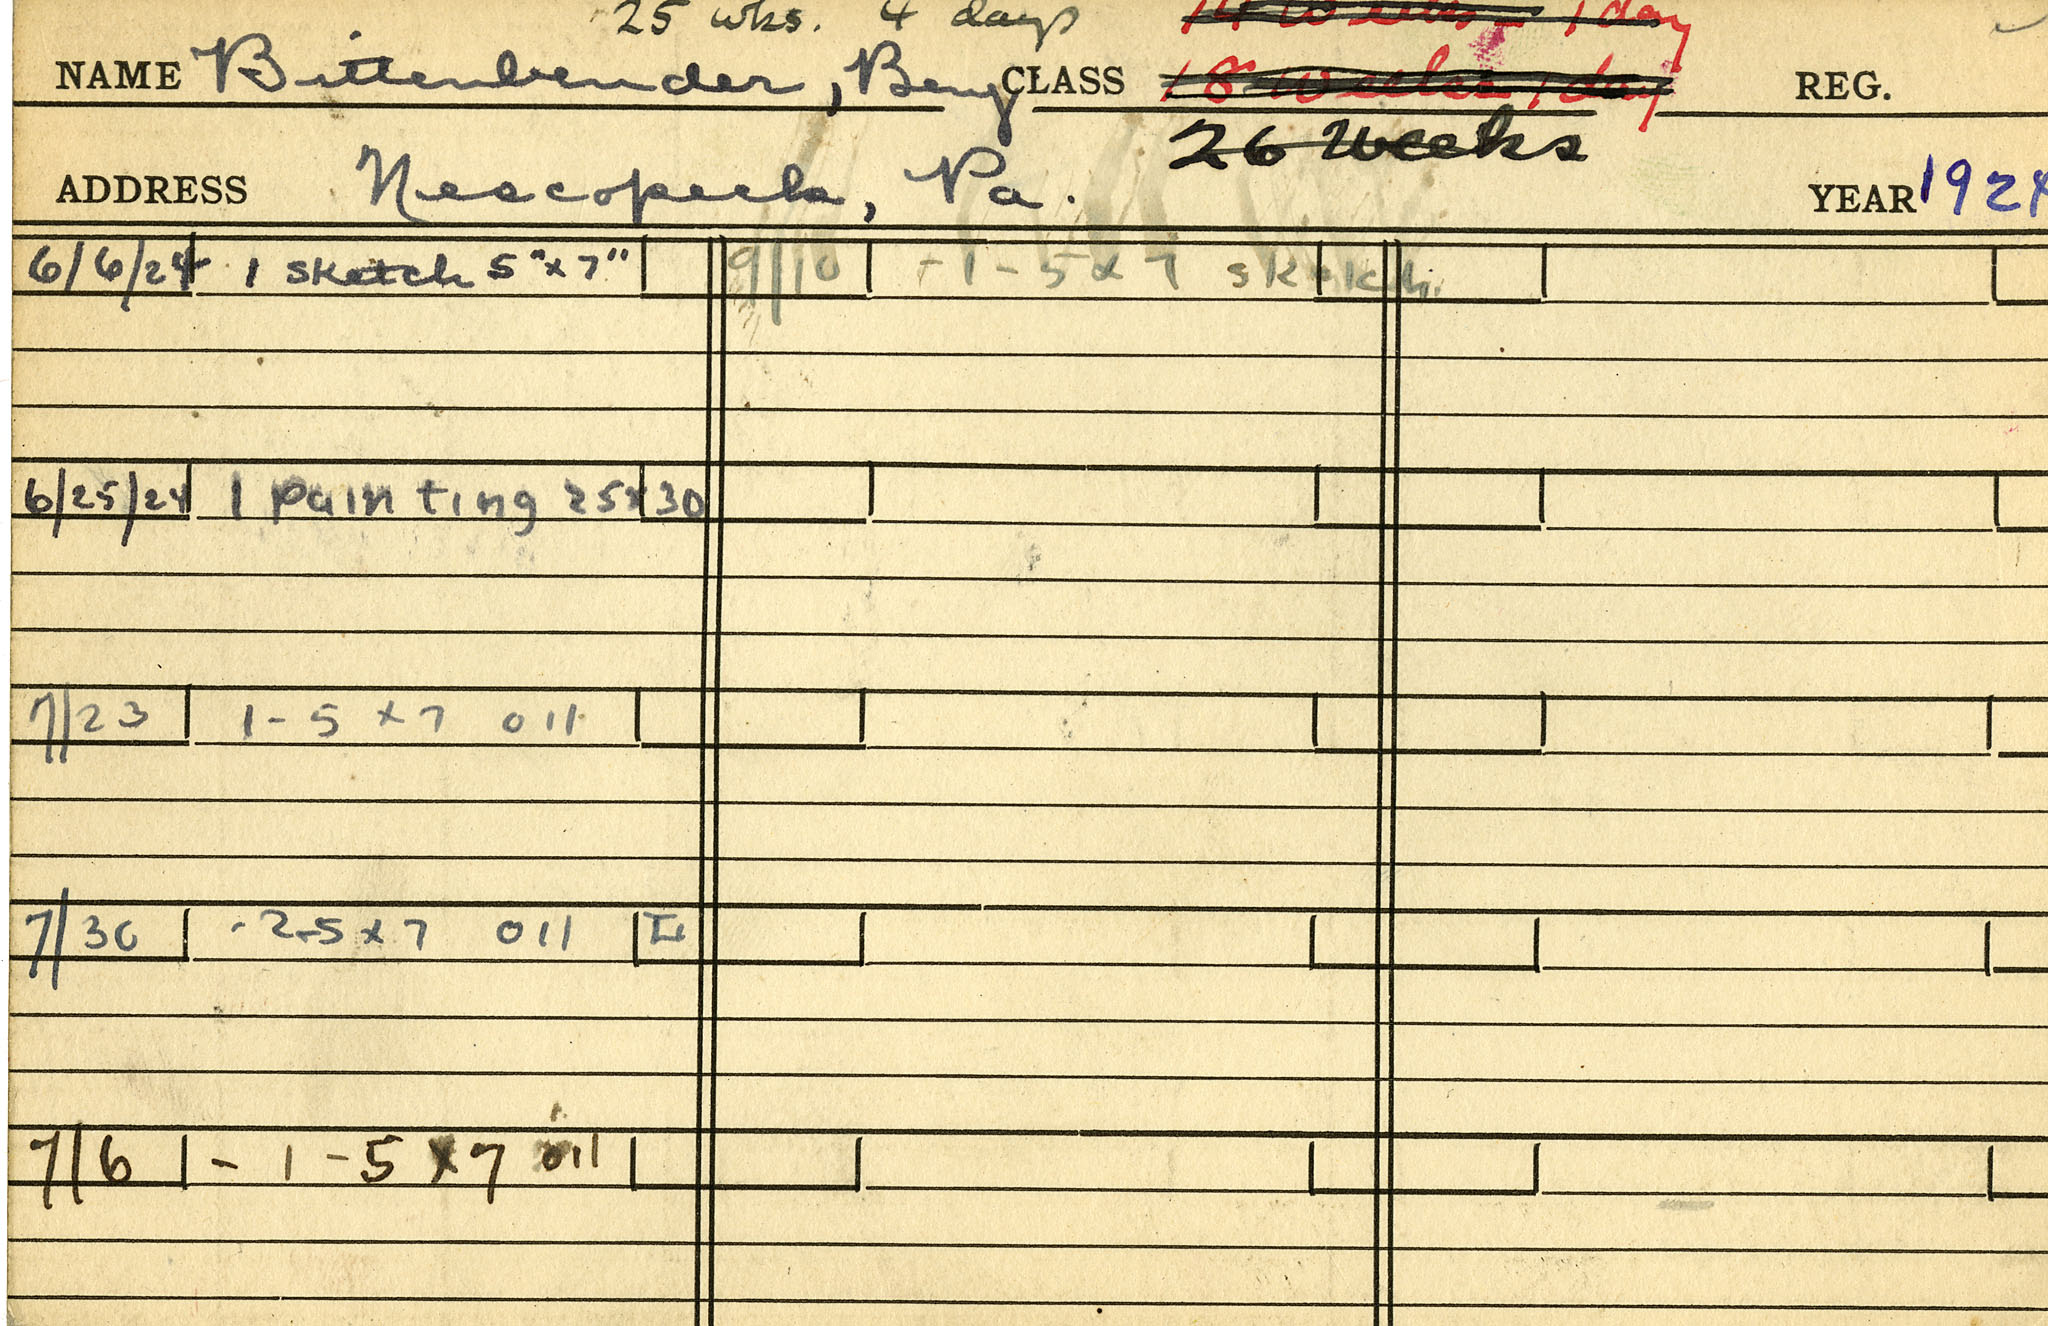 25 wks. 4 days 14 Weeks - 1 day
NAME Bittenbender, Benj CLASS 18 Weeks 1 day REG.
26 Weeks
ADDRESS Nescopeck, Pa. YEAR 1924
6/6/24 1 sketch 5"x7" 9/10 - 1 - 5 x 7 sketch.
6/25/24 1 painting 25x30
7/23 1 - 5 x 7 oil
7/30 - 2-5 x 7 oil
7/6 - 1 - 5 x 7 oil